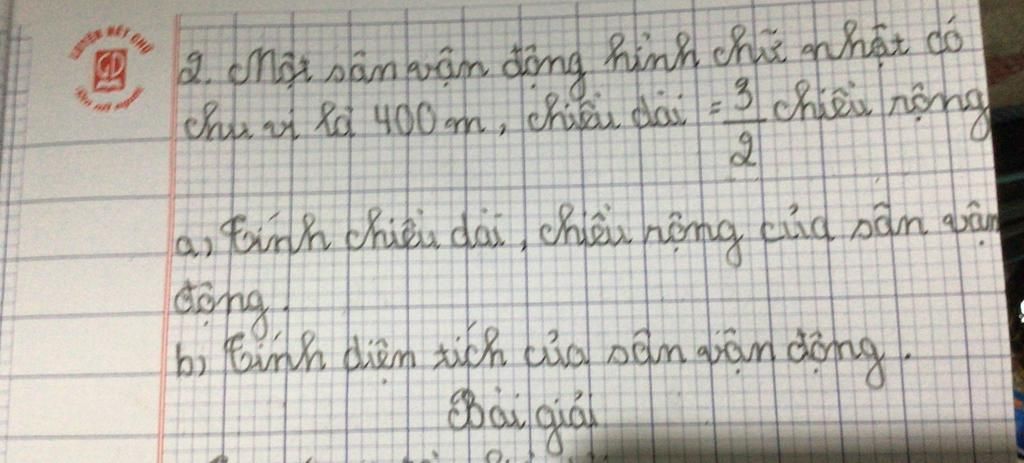 LUYỆN NÉT CHỮ
RÈN NẾT NGƯỜI
2. Một sân vận động hình chữ nhật có
chu vi là 400 m, chiều dài = 3/2 chiều rộng
a, Tính chiều dài, chiều rộng của sân vận
động.
b, Tính diện tích của sân vận động.
Bài giải